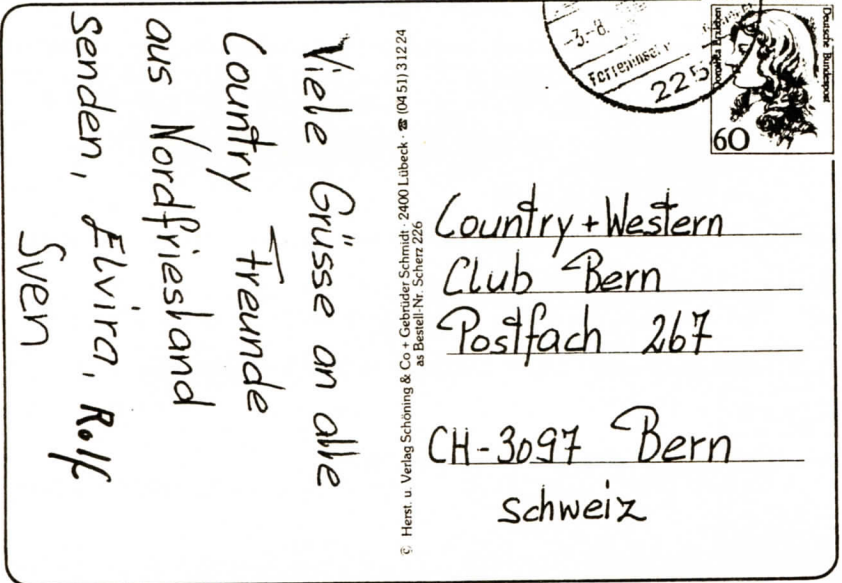 Viele Grüsse an alle
Country Freunde
aus Nordfriesland
senden, Elvira, Rolf
Sven
© Herst. u. Verlag Schöning & Co + Gebrüder Schmidt · 2400 Lübeck · ☎ (04 51) 3 12 24
as Bestell-Nr. Scherz 226
-3.-8.
225
Deutsche Bundespost
60
Country + Western
Club Bern
Postfach 267
CH-3097 Bern
Schweiz